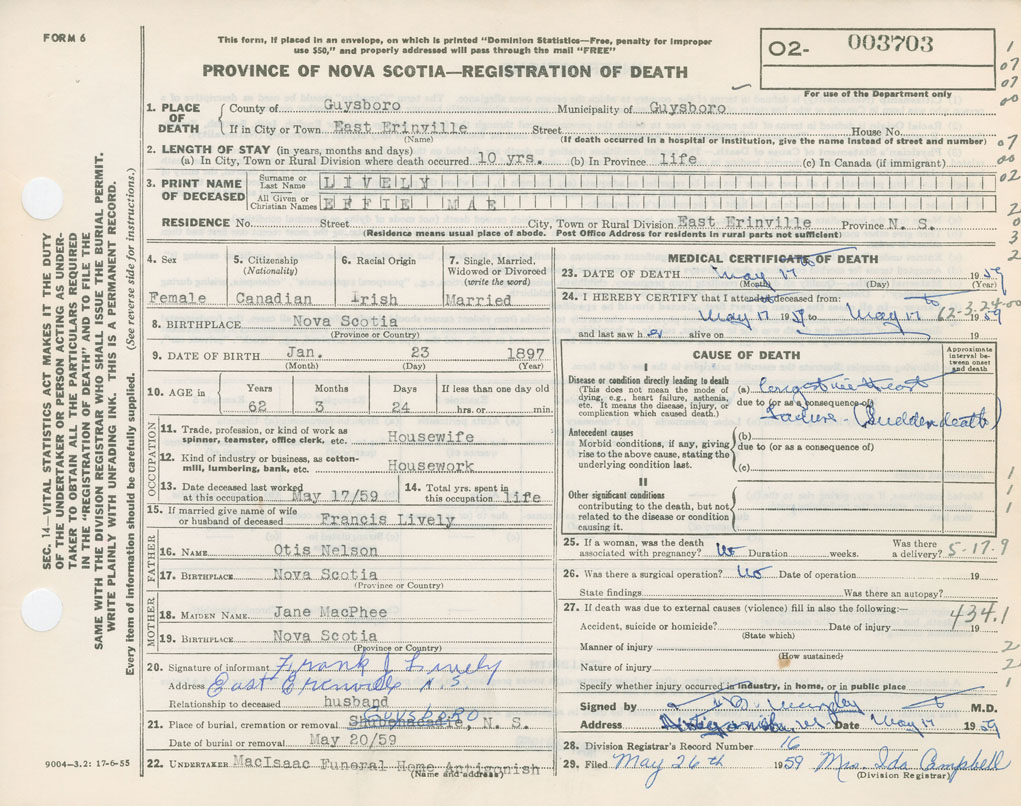 FORM 6
This form, if placed in an envelope, on which is printed "Dominion Statistics—Free, penalty for improper
use $50," and properly addressed will pass through the mail "FREE"
PROVINCE OF NOVA SCOTIA—REGISTRATION OF DEATH
O2- 003703
For use of the Department only
1
07
07
00
07
00
02
2
0
3
2
SEC. 14—VITAL STATISTICS ACT MAKES IT THE DUTY
OF THE UNDERTAKER OR PERSON ACTING AS UNDER-
TAKER TO OBTAIN ALL THE PARTICULARS REQUIRED
IN THE "REGISTRATION OF DEATH" AND TO FILE THE
SAME WITH THE DIVISION REGISTRAR WHO SHALL ISSUE THE BURIAL PERMIT.
WRITE PLAINLY WITH UNFADING INK. THIS IS A PERMANENT RECORD.
Every item of information should be carefully supplied. (See reverse side for instructions.)
1. PLACE OF DEATH
County of Guysboro Municipality of Guysboro
If in City or Town East Erinville Street House No.
(Name) (If death occurred in a hospital or institution, give the name instead of street and number)
2. LENGTH OF STAY (in years, months and days)
(a) In City, Town or Rural Division where death occurred 10 yrs. (b) In Province life (c) In Canada (if immigrant)
3. PRINT NAME OF DECEASED
Surname or Last Name LIVELY
All Given or Christian Names EFFIE MAE
RESIDENCE No. Street City, Town or Rural Division East Erinville Province N. S.
(Residence means usual place of abode. Post Office Address for residents in rural parts not sufficient)
4. Sex Female
5. Citizenship (Nationality) Canadian
6. Racial Origin Irish
7. Single, Married, Widowed or Divorced (write the word) Married
8. BIRTHPLACE Nova Scotia
(Province or Country)
9. DATE OF BIRTH Jan. 23 1897
(Month) (Day) (Year)
10. AGE in Years Months Days If less than one day old
62 3 24 hrs. or min.
OCCUPATION
11. Trade, profession, or kind of work as
spinner, teamster, office clerk, etc. Housewife
12. Kind of industry or business, as cotton-
mill, lumbering, bank, etc. Housework
13. Date deceased last worked
at this occupation May 17/59
14. Total yrs. spent in
this occupation life
15. If married give name of wife
or husband of deceased Francis Lively
FATHER
16. NAME Otis Nelson
17. BIRTHPLACE Nova Scotia
(Province or Country)
MOTHER
18. MAIDEN NAME Jane MacPhee
19. BIRTHPLACE Nova Scotia
(Province or Country)
20. Signature of informant Frank J Lively
Address East Erenville N.S.
Relationship to deceased husband
21. Place of burial, cremation or removal Guysboro, N. S.
Date of burial or removal May 20/59
22. UNDERTAKER MacIsaac Funeral Home Antigonish
(Name and address)
9004—3.2: 17-6-55
MEDICAL CERTIFICATE OF DEATH
23. DATE OF DEATH May 17th 1959
(Month) (Day) (Year)
24. I HEREBY CERTIFY that I attended deceased from:
May 17 1959 to May 17th 1959
62-3-24-00
and last saw h er alive on 19
CAUSE OF DEATH
Approximate interval between onset and death
I
Disease or condition directly leading to death
(This does not mean the mode of
dying, e.g., heart failure, asthenia,
etc. It means the disease, injury, or
complication which caused death.)
(a) Congestive Heart
due to (or as a consequence of)
Failure - (Sudden death)
Antecedent causes
Morbid conditions, if any, giving
rise to the above cause, stating the
underlying condition last.
(b)
due to (or as a consequence of)
(c)
II
Other significant conditions
contributing to the death, but not
related to the disease or condition
causing it.
1
1
1
25. If a woman, was the death
associated with pregnancy? No Duration weeks. Was there
a delivery?
5-17.9
26. Was there a surgical operation? No Date of operation 19
State findings Was there an autopsy?
27. If death was due to external causes (violence) fill in also the following:—
434.1
Accident, suicide or homicide? Date of injury 19
(State which)
Manner of injury 2
(How sustained)
Nature of injury 2
Specify whether injury occurred in industry, in home, or in public place 1
Signed by Murphy M.D.
Address Antigonish, Date May 17 1959
28. Division Registrar's Record Number 16
29. Filed May 26th 1959 Mrs. Ida Campbell
(Division Registrar)